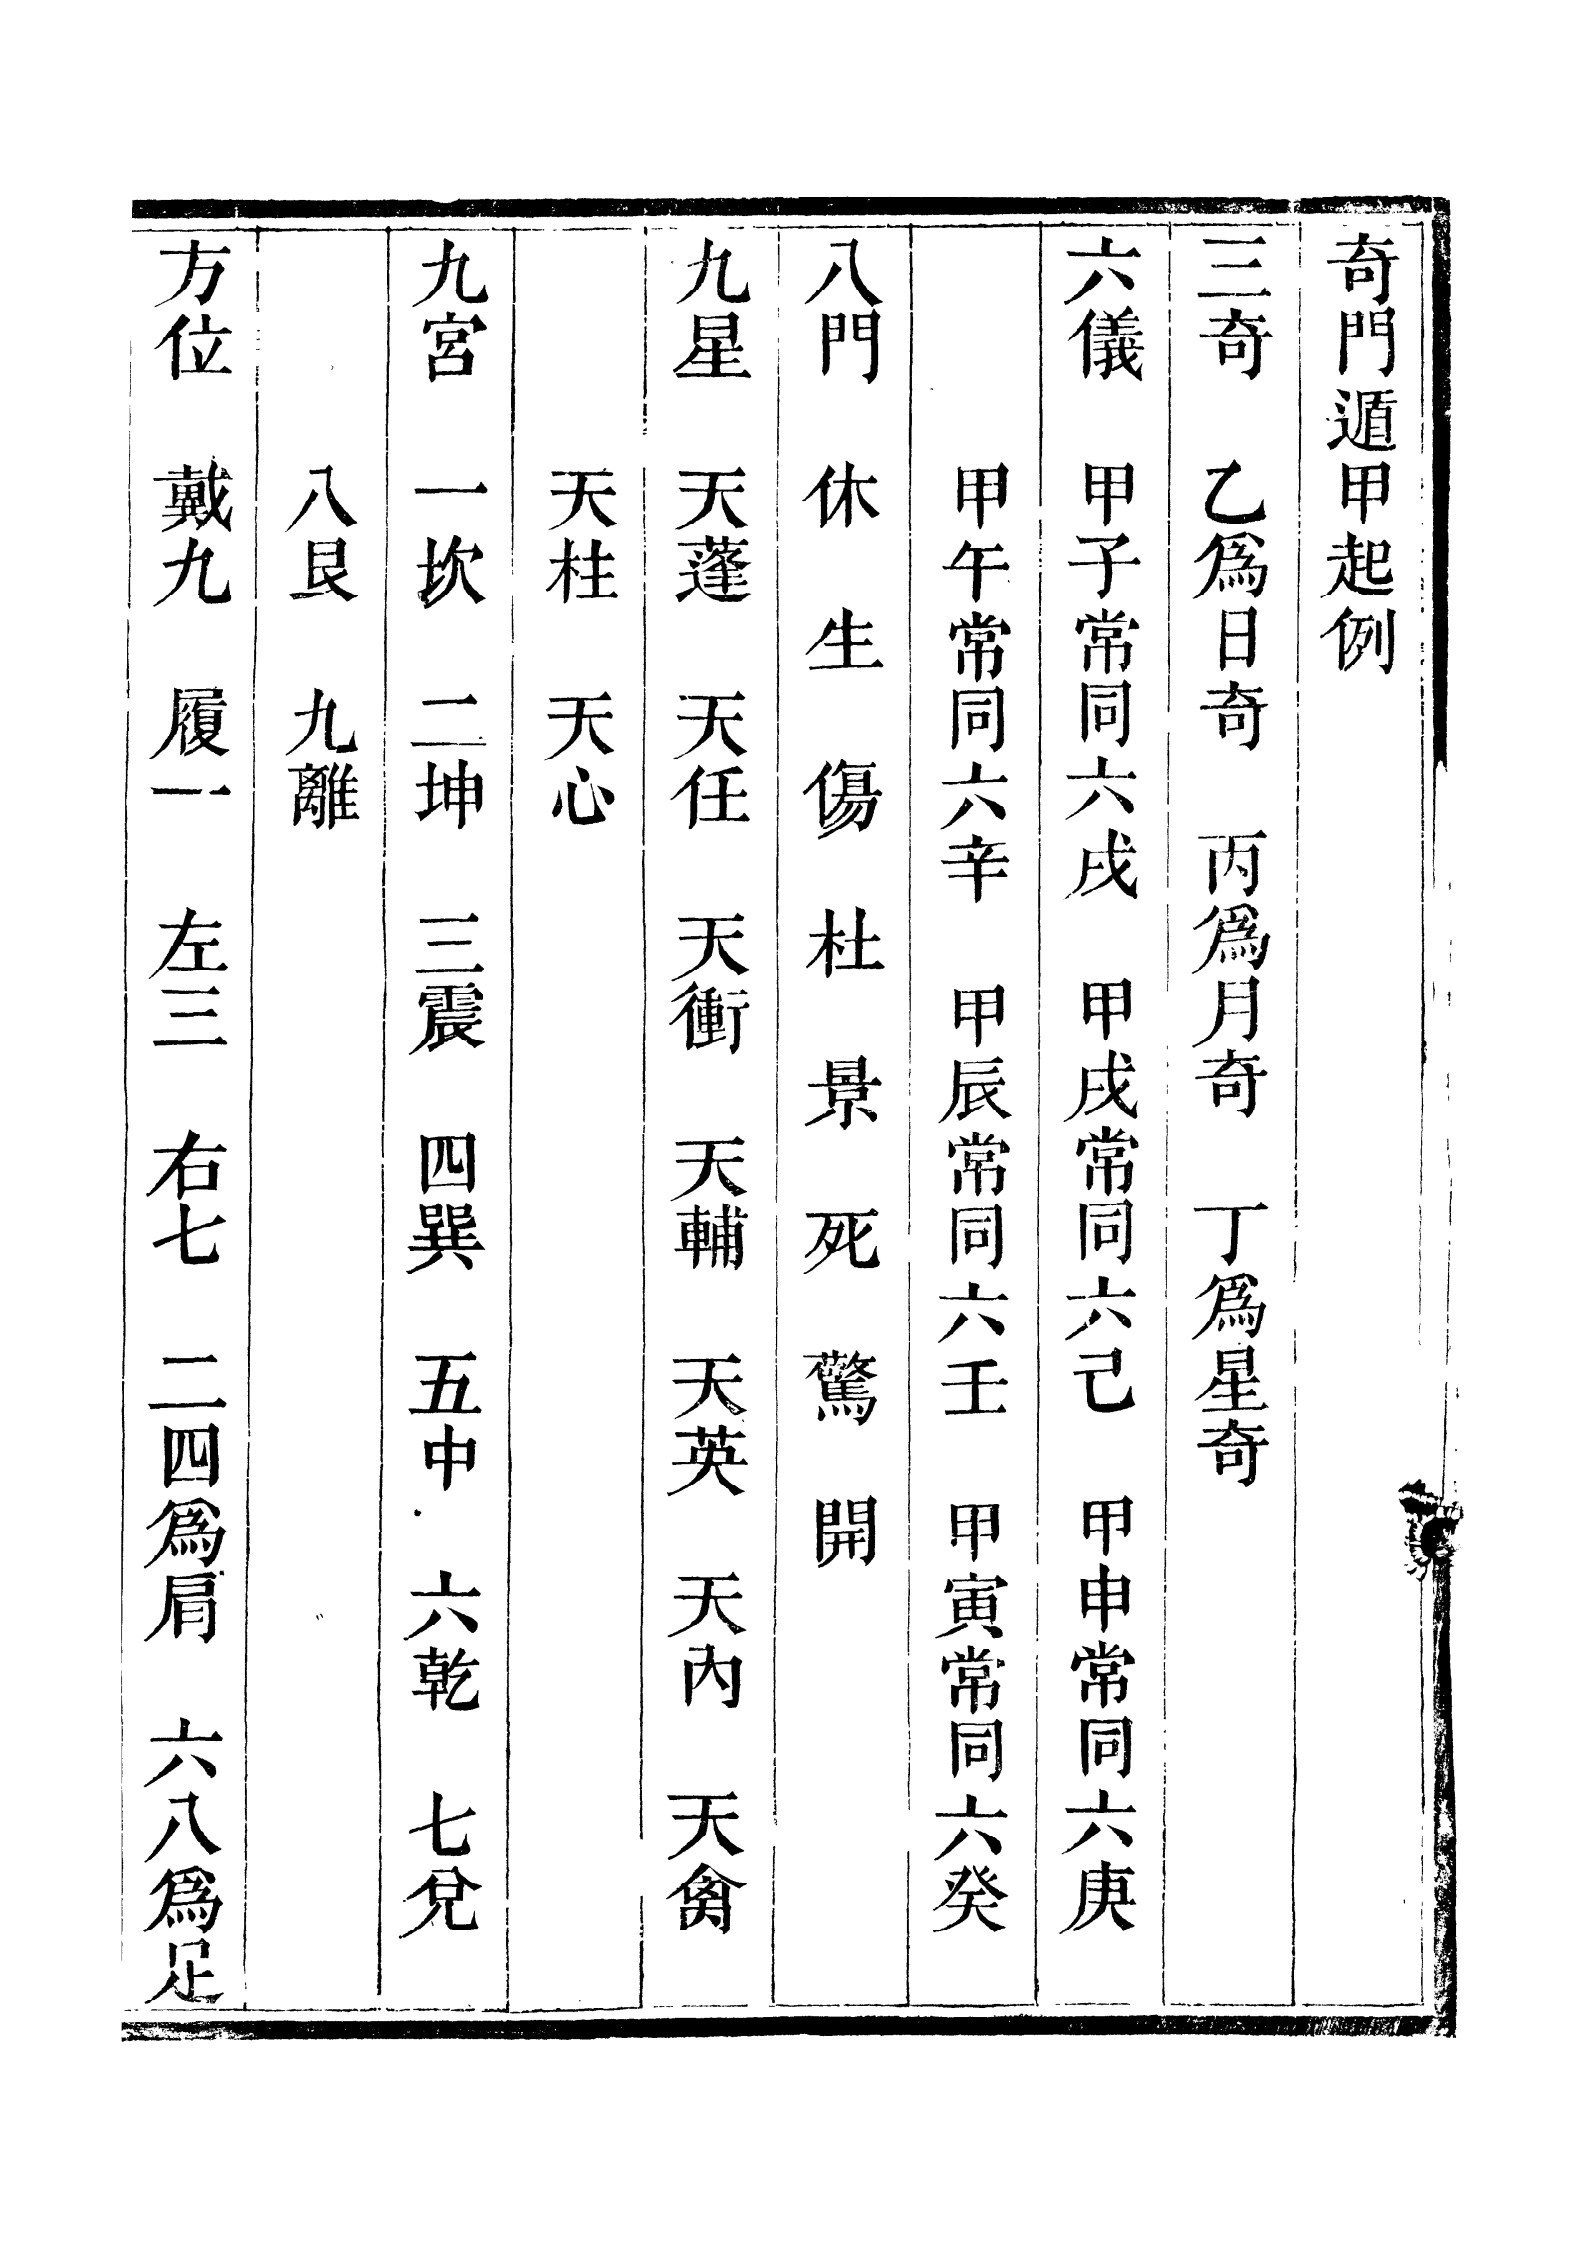 奇門遁甲起例
三奇　乙爲日奇　丙爲月奇　丁爲星奇
六儀　甲子常同六戌　甲戌常同六己　甲申常同六庚
甲午常同六辛　甲辰常同六壬　甲寅常同六癸
八門　休　生　傷　杜　景　死　驚　開
九星　天蓬　天任　天衝　天輔　天英　天內　天禽
天柱　天心
九宮　一坎　二坤　三震　四巽　五中　六乾　七兌
八艮　九離
方位　戴九　履一　左三　右七　二四爲肩　六八爲足